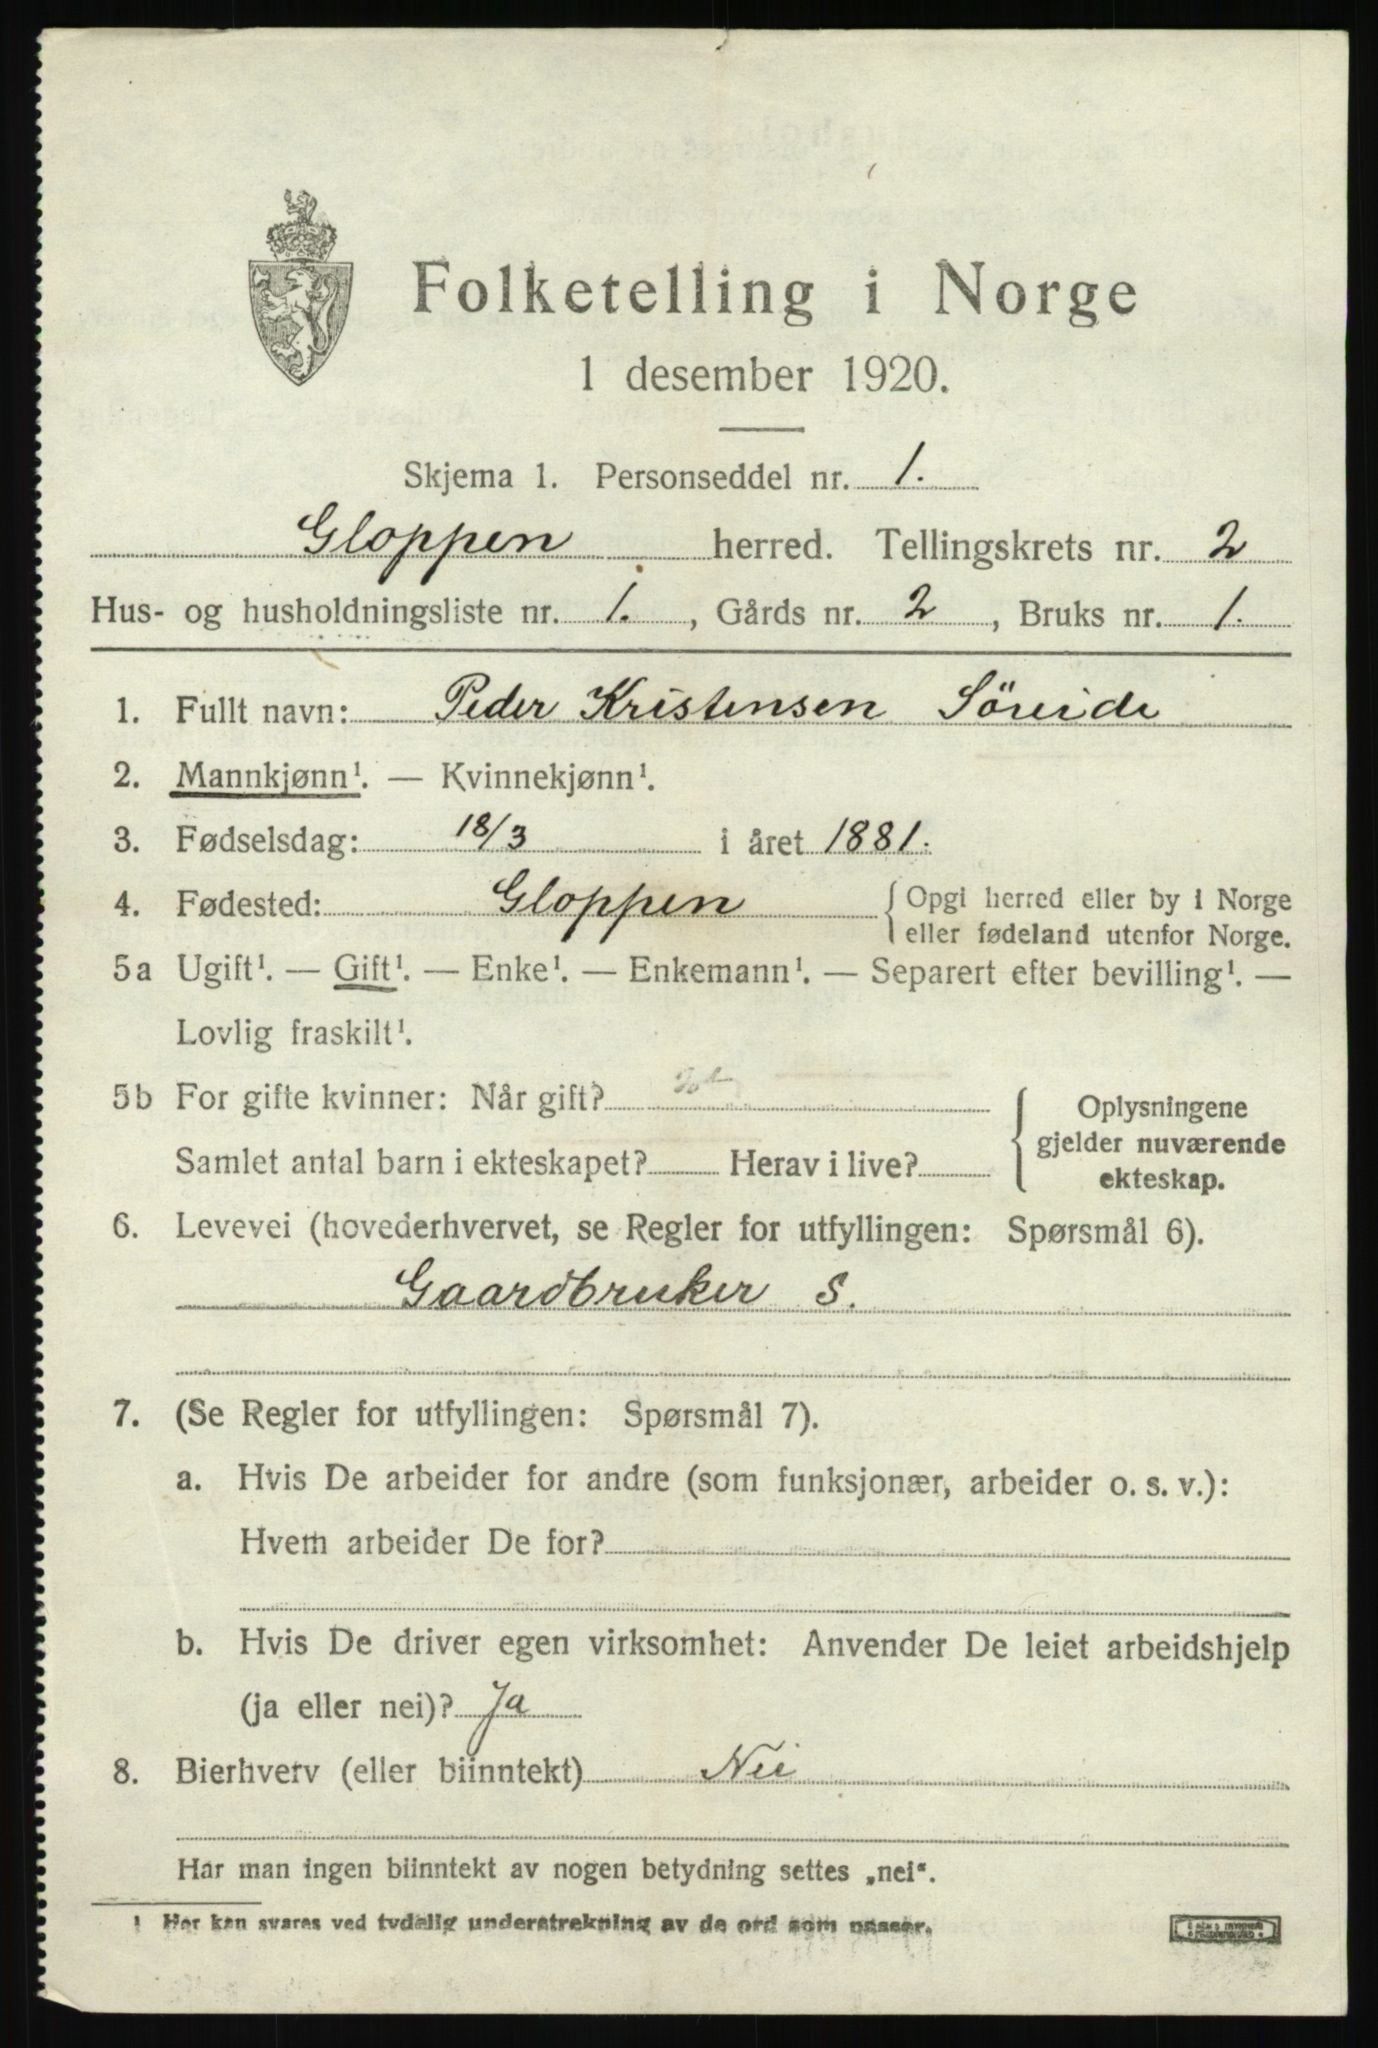 Folketelling i Norge
1 desember 1920.
Skjema 1. Personseddel nr. 1.
Gloppen herred. Tellingskrets nr. 2
Hus- og husholdningsliste nr. 1., Gårds nr. 2, Bruks nr. 1.
1. Fullt navn: Peder Kristensen Söreide
2. Mannkjønn¹. — Kvinnekjønn¹.
3. Fødselsdag: 18/3 i året 1881.
4. Fødested: Gloppen { Opgi herred eller by i Norge
eller fødeland utenfor Norge.
5a Ugift¹. — Gift¹. — Enke¹. — Enkemann¹. — Separert efter bevilling¹. —
Lovlig fraskilt¹.
5b For gifte kvinner: Når gift?
Samlet antal barn i ekteskapet? Herav i live?
{ Oplysningene
gjelder nuværende
ekteskap.
6. Levevei (hovederhvervet, se Regler for utfyllingen: Spørsmål 6).
Gaardbruker S.
7. (Se Regler for utfyllingen: Spørsmål 7).
a. Hvis De arbeider for andre (som funksjonær, arbeider o. s. v.):
Hvem arbeider De for?
b. Hvis De driver egen virksomhet: Anvender De leiet arbeidshjelp
(ja eller nei)? Ja
8. Bierhverv (eller biinntekt) Nei
Har man ingen biinntekt av nogen betydning settes „nei“.
1 Her kan svares ved tydelig understrekning av de ord som passer.